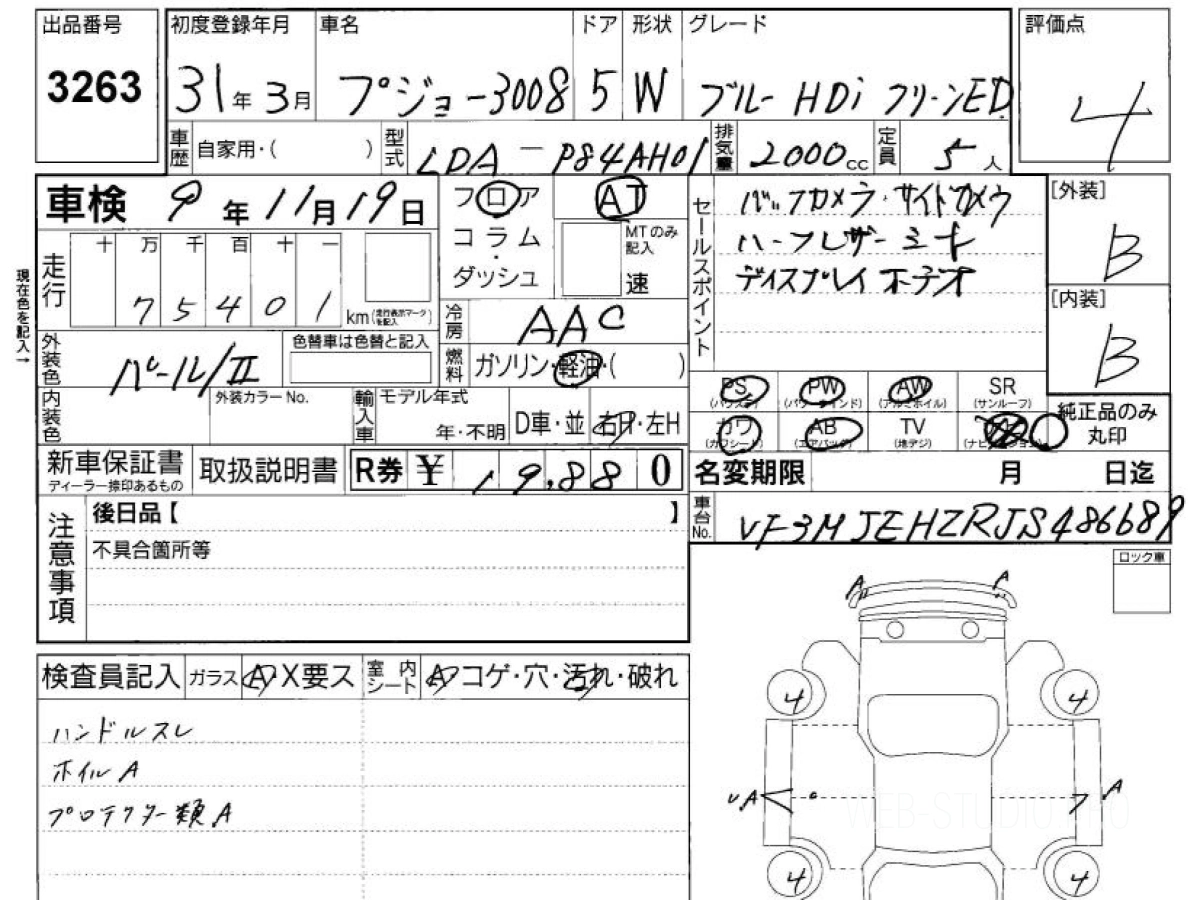 出品番号
3263
初度登録年月
31年3月
車名
プジョー3008
ドア
5
形状
W
グレード
ブルーHDi クリーンED
評価点
4
車歴
自家用・( )
型式
LDA-P84AH01
排気量
2000cc
定員
5人
車検 9年11月19日
走行
十 万 千 百 十 一
7 5 4 0 1 km(走行表示マークを記入)
現在色を記入→
外装色
パール/II
色替車は色替と記入
内装色
外装カラーNo.
フロア
コラム
・
ダッシュ
AT
MTのみ記入
速
冷房
AAC
燃料
ガソリン・軽油・( )
輸入車
モデル年式
年・不明
D車・並
右H・左H
セールスポイント
バックカメラ・サイドカメラ
ハーフレザーシート
ディスプレイオーデオ
[外装]
B
[内装]
B
PS (パワステ)
PW (パワーウインド)
AW (アルミホイル)
SR (サンルーフ)
カワ (カワシート)
AB (エアバッグ)
TV (地デジ)
純正品のみ丸印
新車保証書
ディーラー捺印あるもの
取扱説明書
R券 ¥ 19,880
名変期限 月 日迄
車台No.
VF3MJEHZRJS486689
注意事項
後日品【 】
不具合箇所等
ロック車
検査員記入
ガラス
A・X要ス
室内シート
A・コゲ・穴・汚れ・破れ
ハンドルスレ
ホイルA
プロテクター類A
A A
4 4
νA A
4 4
WEB-STUDIO.PRO